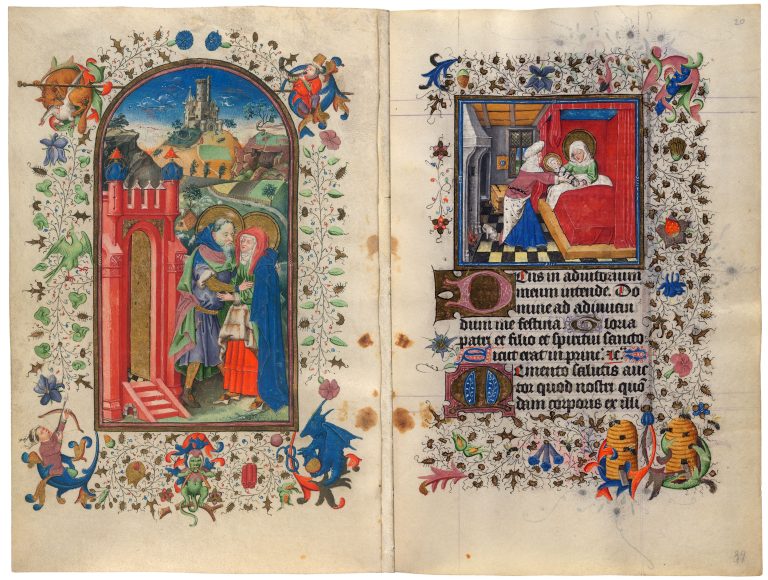 20
Deus in adiutorium
meum intende. Do
mine ad adiuuan
dum me festina Gloria
patri et filio et spiritui sancto
Sicut erat in princ.
Memento salutis auc
tor quod nostri quo
dam corporis ex illi